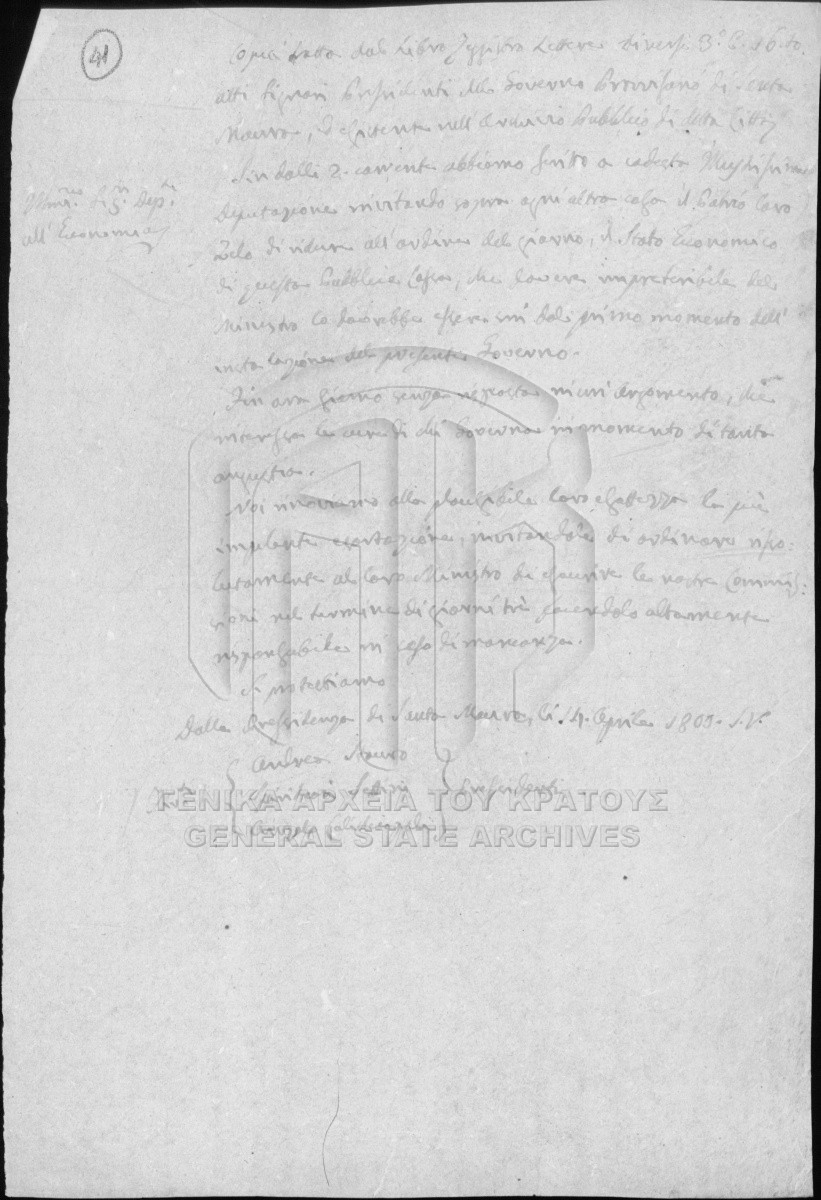 41
Copia tratta dal Libro Registro Lettere Diversi 3.º C. 16. tº.
delli Signori Presidenti del Governo Provvisorio di Santa
Maura, esistente nell'Archivio Pubblico di detta Città
Sin dalli 2. corrente abbiamo scritto a codesta
Deputazione invitando sopra ogni altra cosa il Patrio loro
Zelo di ridurre all'ordine del giorno, il Stato Economico
di questa Pubblica Cassa, che dovere impreteribile del
Ministro lo dovrebbe essere sin dal primo momento dell'
instalazione del presente Governo.
Sin ora siamo senza risposta in un'argomento, che
interessa le cure di un Governo in momento di tanta
angustia.
Noi rinoviamo alla plausibile loro esattezza la più
esortazione, invitandole di ordinare riso:
lutamente al loro Ministro di esaurire le nostre Commis:
sioni nel termine di giorni tre facendolo altamente
responsabile in caso di mancanza.
Si protestiamo
Dalla Presidenza di Santa Maura, li 14. Aprile 1801. S.V.
Andrea
Presidenti
Angelo
Sig.ri Dep.ti
all'Economia
ΓΕΝΙΚΑ ΑΡΧΕΙΑ ΤΟΥ ΚΡΑΤΟΥΣ
GENERAL STATE ARCHIVES